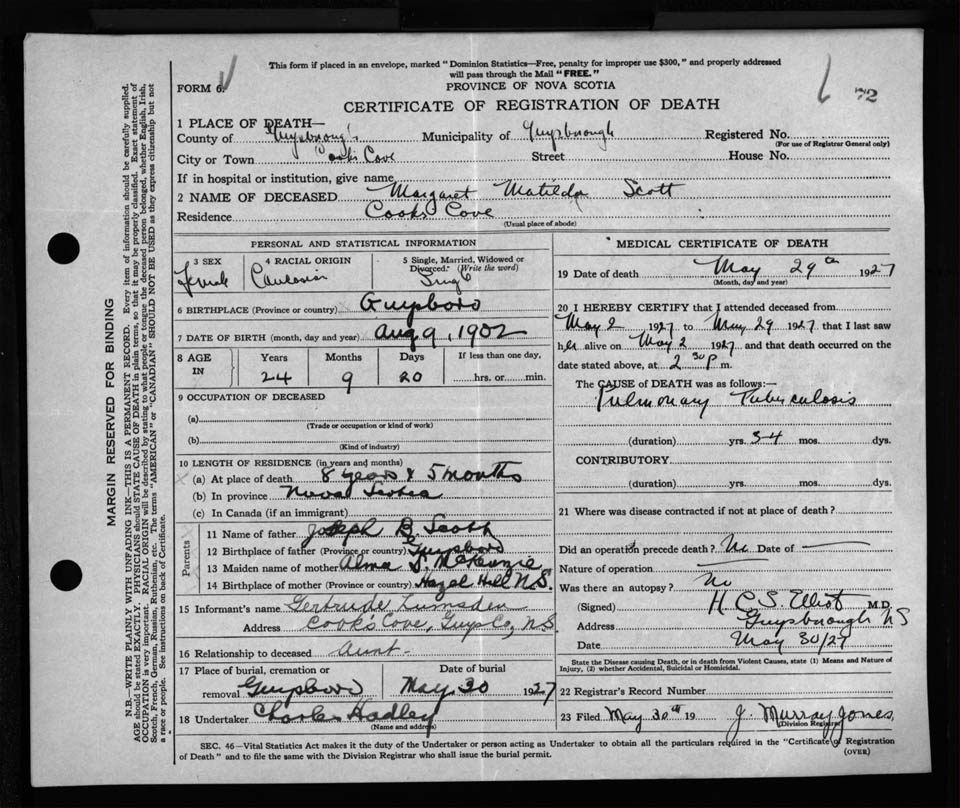 This form if placed in an envelope, marked "Dominion Statistics—Free, penalty for improper use $300," and properly addressed
will pass through the Mail "FREE."
FORM 6. PROVINCE OF NOVA SCOTIA 72
CERTIFICATE OF REGISTRATION OF DEATH
MARGIN RESERVED FOR BINDING
N.B.—WRITE PLAINLY WITH UNFADING INK—THIS IS A PERMANENT RECORD. Every item of information should be carefully supplied.
AGE should be stated EXACTLY. PHYSICIANS should STATE CAUSE OF DEATH in plain terms, so that it may be properly classified. Exact statement of
OCCUPATION is very important. RACIAL ORIGIN will be described by stating to what people or tongue the deceased person belonged, whether English, Irish,
Scotch, French, German, Russian, Ruthenian, etc. The terms "AMERICAN" or "CANADIAN" SHOULD NOT BE USED as they express citizenship but not
a race or people. See instructions on back of Certificate.
1 PLACE OF DEATH—
County of Guysborough Municipality of Guysborough Registered No.
(For use of Registrar General only)
City or Town Cooks Cove Street House No.
If in hospital or institution, give name
2 NAME OF DECEASED Margaret Matilda Scott
Residence Cooks Cove
(Usual place of abode)
PERSONAL AND STATISTICAL INFORMATION
3 SEX 4 RACIAL ORIGIN 5 Single, Married, Widowed or
Divorced. (Write the word)
Female
6 BIRTHPLACE (Province or country) Guysboro
7 DATE OF BIRTH (month, day and year) Aug 9, 1902
8 AGE IN Years Months Days If less than one day,
24 9 20 hrs. or min.
9 OCCUPATION OF DECEASED
(a)
(Trade or occupation or kind of work)
(b)
(Kind of industry)
10 LENGTH OF RESIDENCE (in years and months)
(a) At place of death 8 years & 5 months
(b) In province Nova Scotia
(c) In Canada (if an immigrant)
Parents
11 Name of father Joseph B. Scott
12 Birthplace of father (Province or country) Guysboro
13 Maiden name of mother Alma S. McKenzie
14 Birthplace of mother (Province or country) Hazel Hill N.S.
15 Informant's name Gertrude Lumsden
Address Cook's Cove, Guys Co, N.S.
16 Relationship to deceased Aunt
17 Place of burial, cremation or Date of burial
removal Guysboro May 30 1927
18 Undertaker Charles Hadley
(Name and address)
MEDICAL CERTIFICATE OF DEATH
19 Date of death May 29th 1927
(Month, day and year)
20 I HEREBY CERTIFY that I attended deceased from
May 2 1927 to May 29 1927 that I last saw
her alive on May 2 1927 and that death occurred on the
date stated above, at 2 30 p m.
The CAUSE of DEATH was as follows:—
Pulmonary Tuberculosis
(duration) yrs. 3-4 mos. dys.
CONTRIBUTORY
(duration) yrs. mos. dys.
21 Where was disease contracted if not at place of death?
Did an operation precede death? No Date of
Nature of operation
Was there an autopsy? No
(Signed) H.C.S. Elliot M.D.
Address Guysborough NS
Date May 30/27
State the Disease causing Death, or in death from Violent Causes, state (1) Means and Nature of
Injury, (2) whether Accidental, Suicidal or Homicidal.
22 Registrar's Record Number
23 Filed May 30th 19 J. Murray Jones
(Division Registrar)
SEC. 46—Vital Statistics Act makes it the duty of the Undertaker or person acting as Undertaker to obtain all the particulars required in the "Certificate of Registration
of Death" and to file the same with the Division Registrar who shall issue the burial permit. (OVER)